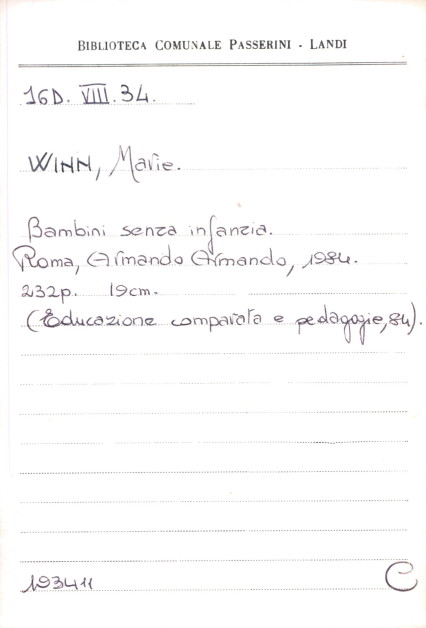 BIBLIOTECA COMUNALE PASSERINI - LANDI
16D. VIII. 34.
WINN, Marie.
Bambini senza infanzia.
Roma, Armando Armando, 1984.
232p. 19cm.
(Educazione comparata e pedagogie, 84).
193411 C